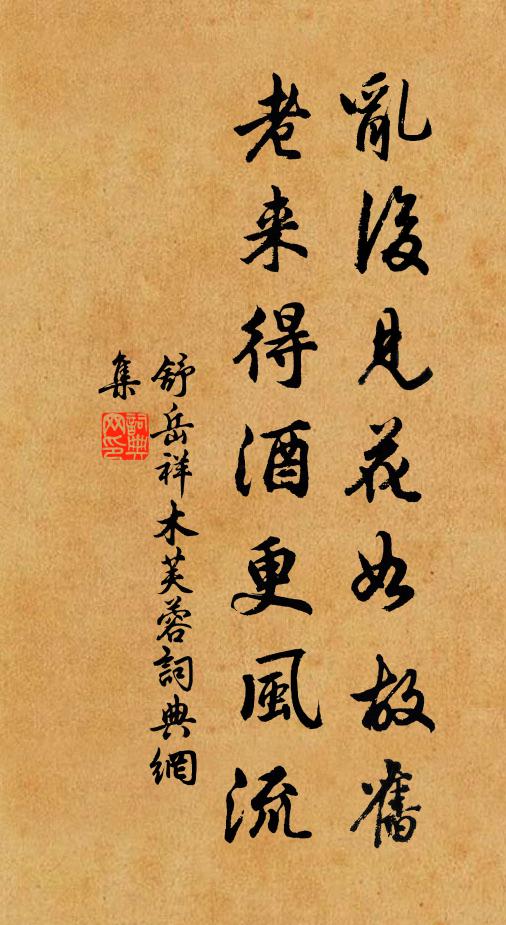 亂後見花如故舊
老來得酒更風流
舒岳祥木芙蓉詞典網
集
詞典
网印